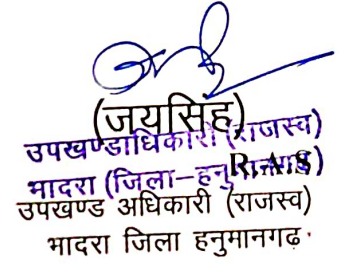 (जयसिंह)
उपखण्डाधिकारी (राजस्व)
R.A.S
भादरा (जिला-हनुमानगढ़)
उपखण्ड अधिकारी (राजस्व)
भादरा जिला हनुमानगढ़.